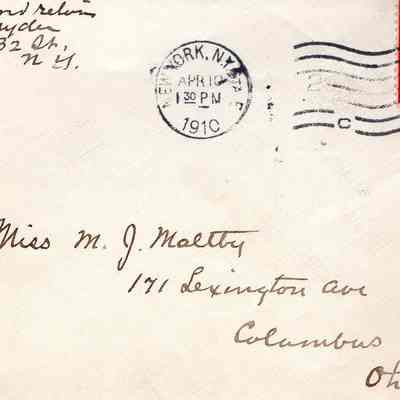 and return
32 St,
N Y.
NEW YORK, N.Y. STA. E
APR 10
1 30 PM
1910
C
Miss M. J. Maltby
171 Lexington Ave
Columbus
Oh